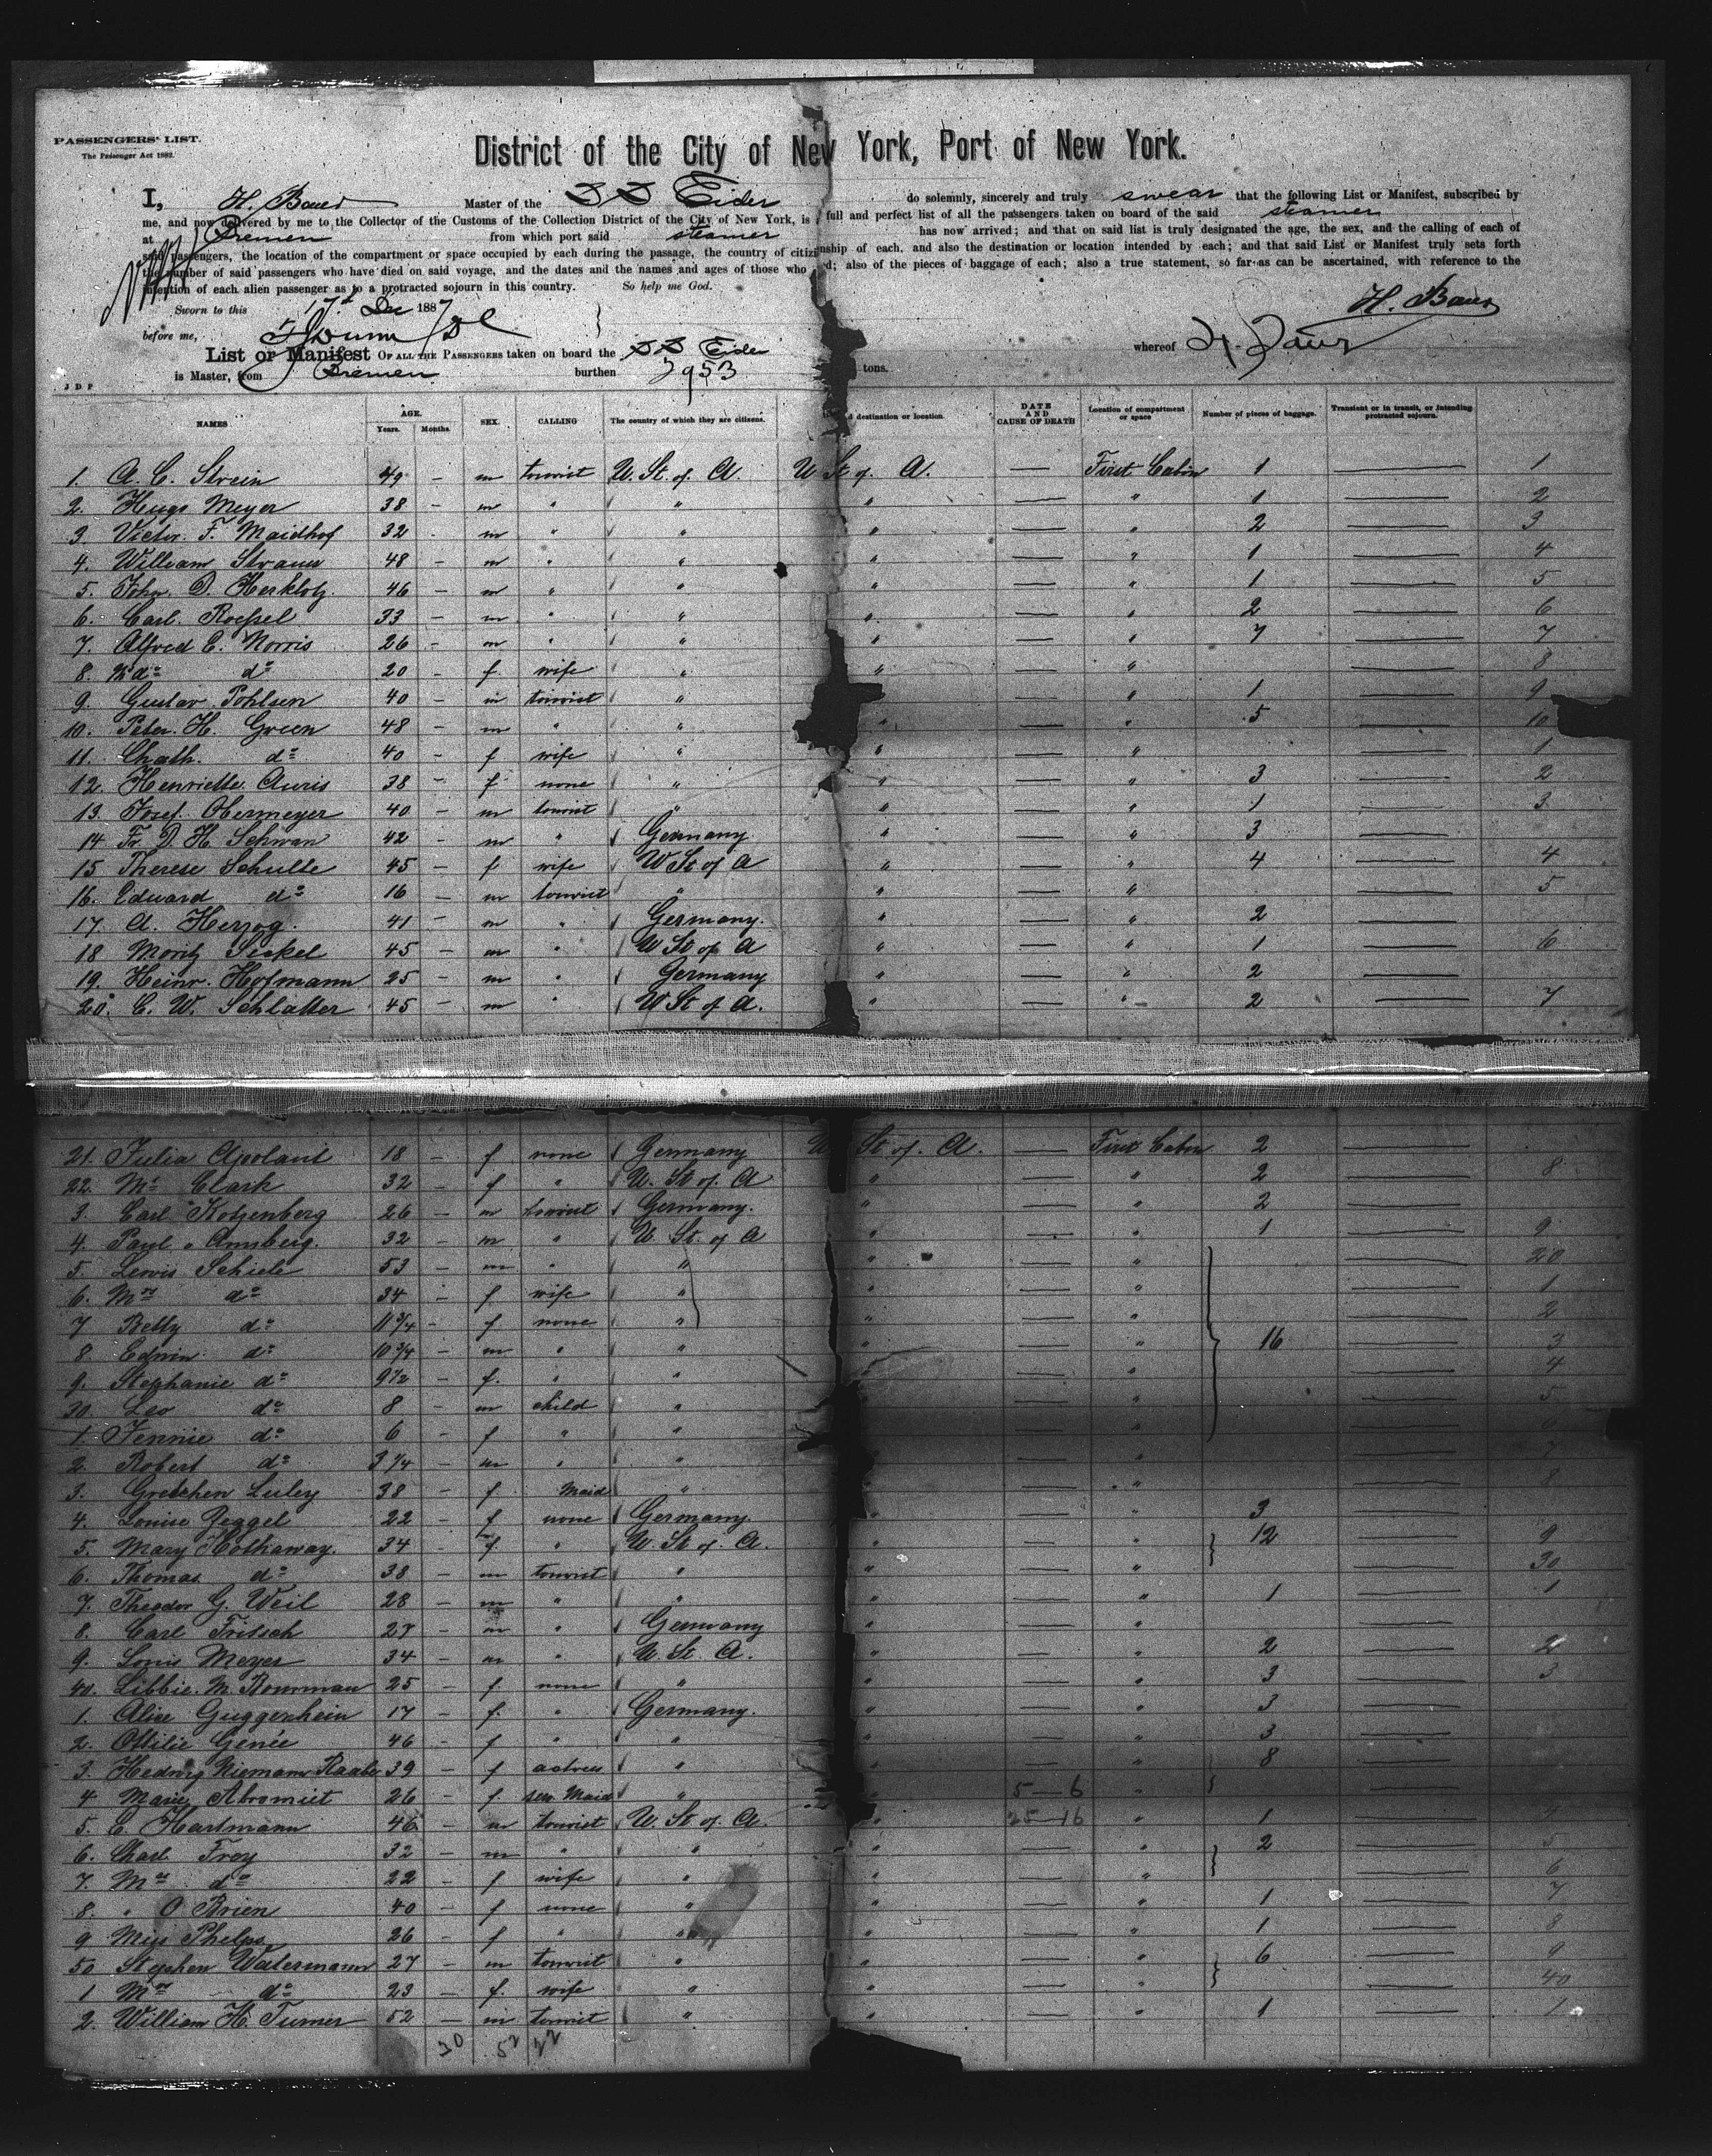 PASSENGERS' LIST.
The Passenger Act 1882.
District of the City of New York, Port of New York.
I, H. Bauer Master of the SS Eider do solemnly, sincerely and truly swear that the following List or Manifest, subscribed by
me, and now delivered by me to the Collector of the Customs of the Collection District of the City of New York, is a full and perfect list of all the passengers taken on board of the said steamer
at Bremen from which port said steamer has now arrived; and that on said list is truly designated the age, the sex, and the calling of each of
said passengers, the location of the compartment or space occupied by each during the passage, the country of citizenship of each, and also the destination or location intended by each; and that said List or Manifest truly sets forth
the number of said passengers who have died on said voyage, and the dates and the names and ages of those who died; also of the pieces of baggage of each; also a true statement, so far as can be ascertained, with reference to the
intention of each alien passenger as to a protracted sojourn in this country. So help me God.
Sworn to this 17t Dec 1887 H. Bauer
before me,
List or Manifest OF ALL THE PASSENGERS taken on board the SS Eider whereof H. Bauer
is Master, from Bremen burthen 2953 tons.
J D P
NAMES AGE. Years. Months. SEX. CALLING The country of which they are citizens. destination or location. DATE AND CAUSE OF DEATH Location of compartment or space Number of pieces of baggage. Transient or in transit, or intending protracted sojourn.
1. A. C. Strein 49 - m tourist U. St. of A. U St of A. — First Cabin 1 — 1
2. Hugo Meyer 38 - m " " " — " 1 — 2
3. Victor F. Maidhof 32 - m " " " — " 2 — 3
4. William Strauss 48 - m " " " — " 1 — 4
5. John D. Herklotz 46 - m " " " — " 1 — 5
6. Carl Roessel 33 - m " " " — " 2 — 6
7. Alfred C. Norris 26 - m " " " — " 7 — 7
8. Md do 20 - f wife " " — " — 8
9. Gustav Pohlsen 40 - m tourist " " — " 1 — 9
10. Peter H. Green 48 - m " " " — " 5 — 10
11. Chath. do 40 - f wife " " — " — 1
12. Henriette Auris 38 - f none " " — " 3 — 2
13. Josef Obermeyer 40 - m tourist " " — " 1 — 3
14 Fr. D. H. Schwan 42 - m " Germany " — " 3 —
15 Therese Schulte 45 - f wife U St of A " — " 4 — 4
16. Edward do 16 - m tourist " " — " — 5
17. A. Herzog. 41 - m " Germany. " — " 2 —
18 Moritz Seckel 45 - m " U St of A " — " 1 — 6
19. Heinr. Hofmann 25 - m " Germany " — " 2 —
20. C. W. Schlatter 45 - m " U St of A. " — " 2 — 7
21. Julia Apolant 18 - f none Germany U St of. A. — First Cabin 2 —
22. Mrs Clark 32 - f " U. St of. A " — " 2 — 8
3. Carl Kotzenberg 26 - m tourist Germany. " — " 2 —
4. Paul v Arnsberg. 32 - m " U St. of A " — " 1 — 9
5. Lewis Schiele 53 - m " " " — " — 20
6. Mrs do 34 - f wife " " — " — 1
7 Betty do 11 3/4 - f none " " — " — 2
8. Edwin do 10 3/4 - m " " " — " 16 — 3
9. Stephanie do 9 1/2 - f. " " " — " — 4
30. Leo do 8 - m child " " — " — 5
1. Jennie do 6 - f " " " — " — 6
2. Robert do 3 1/4 - m " " " — " — 7
3. Gretchen Luley 38 - f Maid " " — " — 8
4. Louise Zeggel 22 - f none Germany. " — " 3 —
5. Mary Hothaway. 34 - f. " U. St of. A. " — " 12 — 9
6. Thomas do 38 - m tourist " " — " — 30
7. Theodor G. Weil 28 - m " " " — " 1 — 1
8. Carl Fritsch 27 - m " Germany " — " —
9. Louis Meyer 34 - m " U. St. A. " — " 2 — 2
40. Libbie M. Bowrman 25 - f none " " — " 3 — 3
1. Alice Guggenheim 17 - f. " Germany. " — " 3 —
2. Ottilie Genée 46 - f " " " — " 3 —
3. Hedwig Niemann Raabe 39 - f actress " " — " 8 —
4 Marie Abromeit 26 - f. ser. Maid " " 5-6 " —
5. C. Hartmann 46 - m tourist U. St of. A. " 25-16 " 1 — 4
6. Charl Frey 32 - m " " " — " 2 — 5
7. Mrs do 22 - f wife " " — " — 6
8. " O Brien 40 - f none " " — " 1 — 7
9 Miss Phelps 26 - f " " " — " 1 — 8
50 Stephen Watermann 27 - m tourist " " — " 6 — 9
1 Mrs do 23 - f. wife " " — " — 40
2. William H. Turner 52 - m tourist " " — " 1 — 1
30 52 22